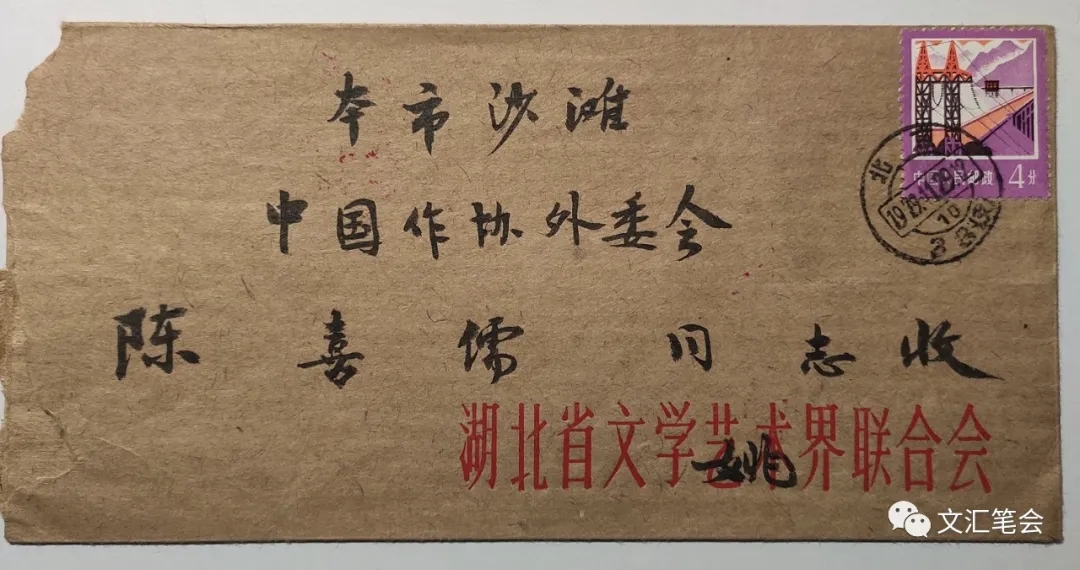 本市沙滩
中国人民邮政 4分
北
中国作协外委会
陈喜儒同志收
湖北省文学艺术界联合会
姚
文汇笔会